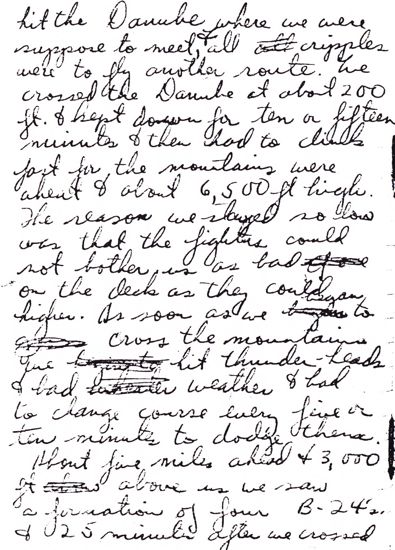 hit the Danube where we were
suppose to meet, & all cripples
were to fly another route. We
crossed the Danube at about 200
ft. & kept down for ten or fifteen
minutes & then had to climb
fast for the mountains were
ahead & about 6,500 ft high.
The reason we stayed so low
was that the fighters could
not bother us as bad
on the deck as they could
higher. As soon as we began to
cross the mountains
we hit thunder-heads
& bad weather & had
to change course every five or
ten minutes to dodge them.
About five miles ahead & 3,000
ft above us we saw
a formation of four B-24's.
& 25 minutes after we crossed